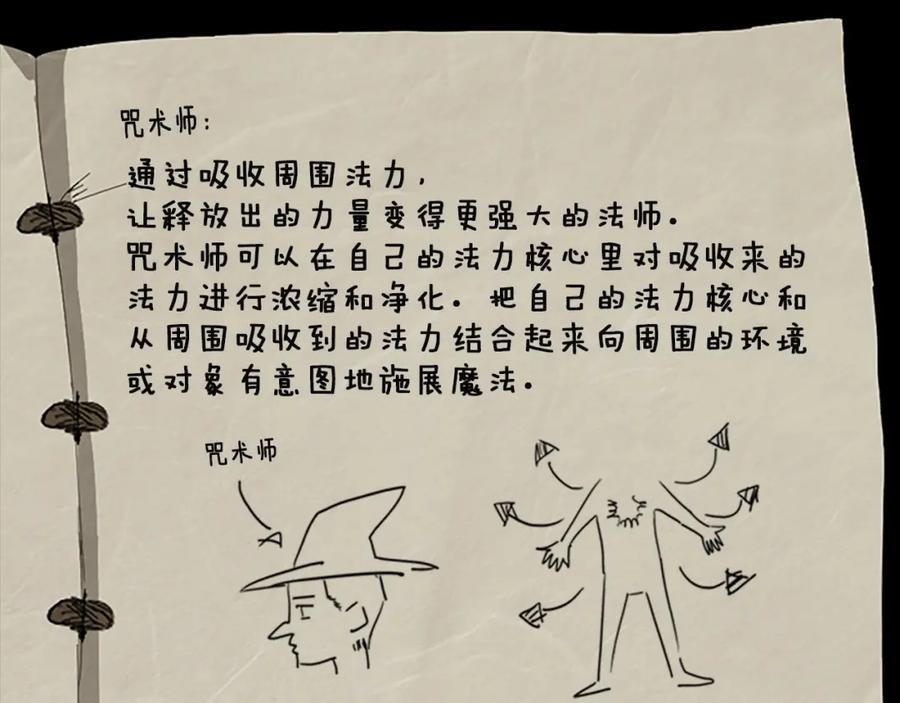 咒术师：
通过吸收周围法力，
让释放出的力量变得更强大的法师。
咒术师可以在自己的法力核心里对吸收来的
法力进行浓缩和净化。把自己的法力核心和
从周围吸收到的法力结合起来向周围的环境
或对象有意图地施展魔法。
咒术师